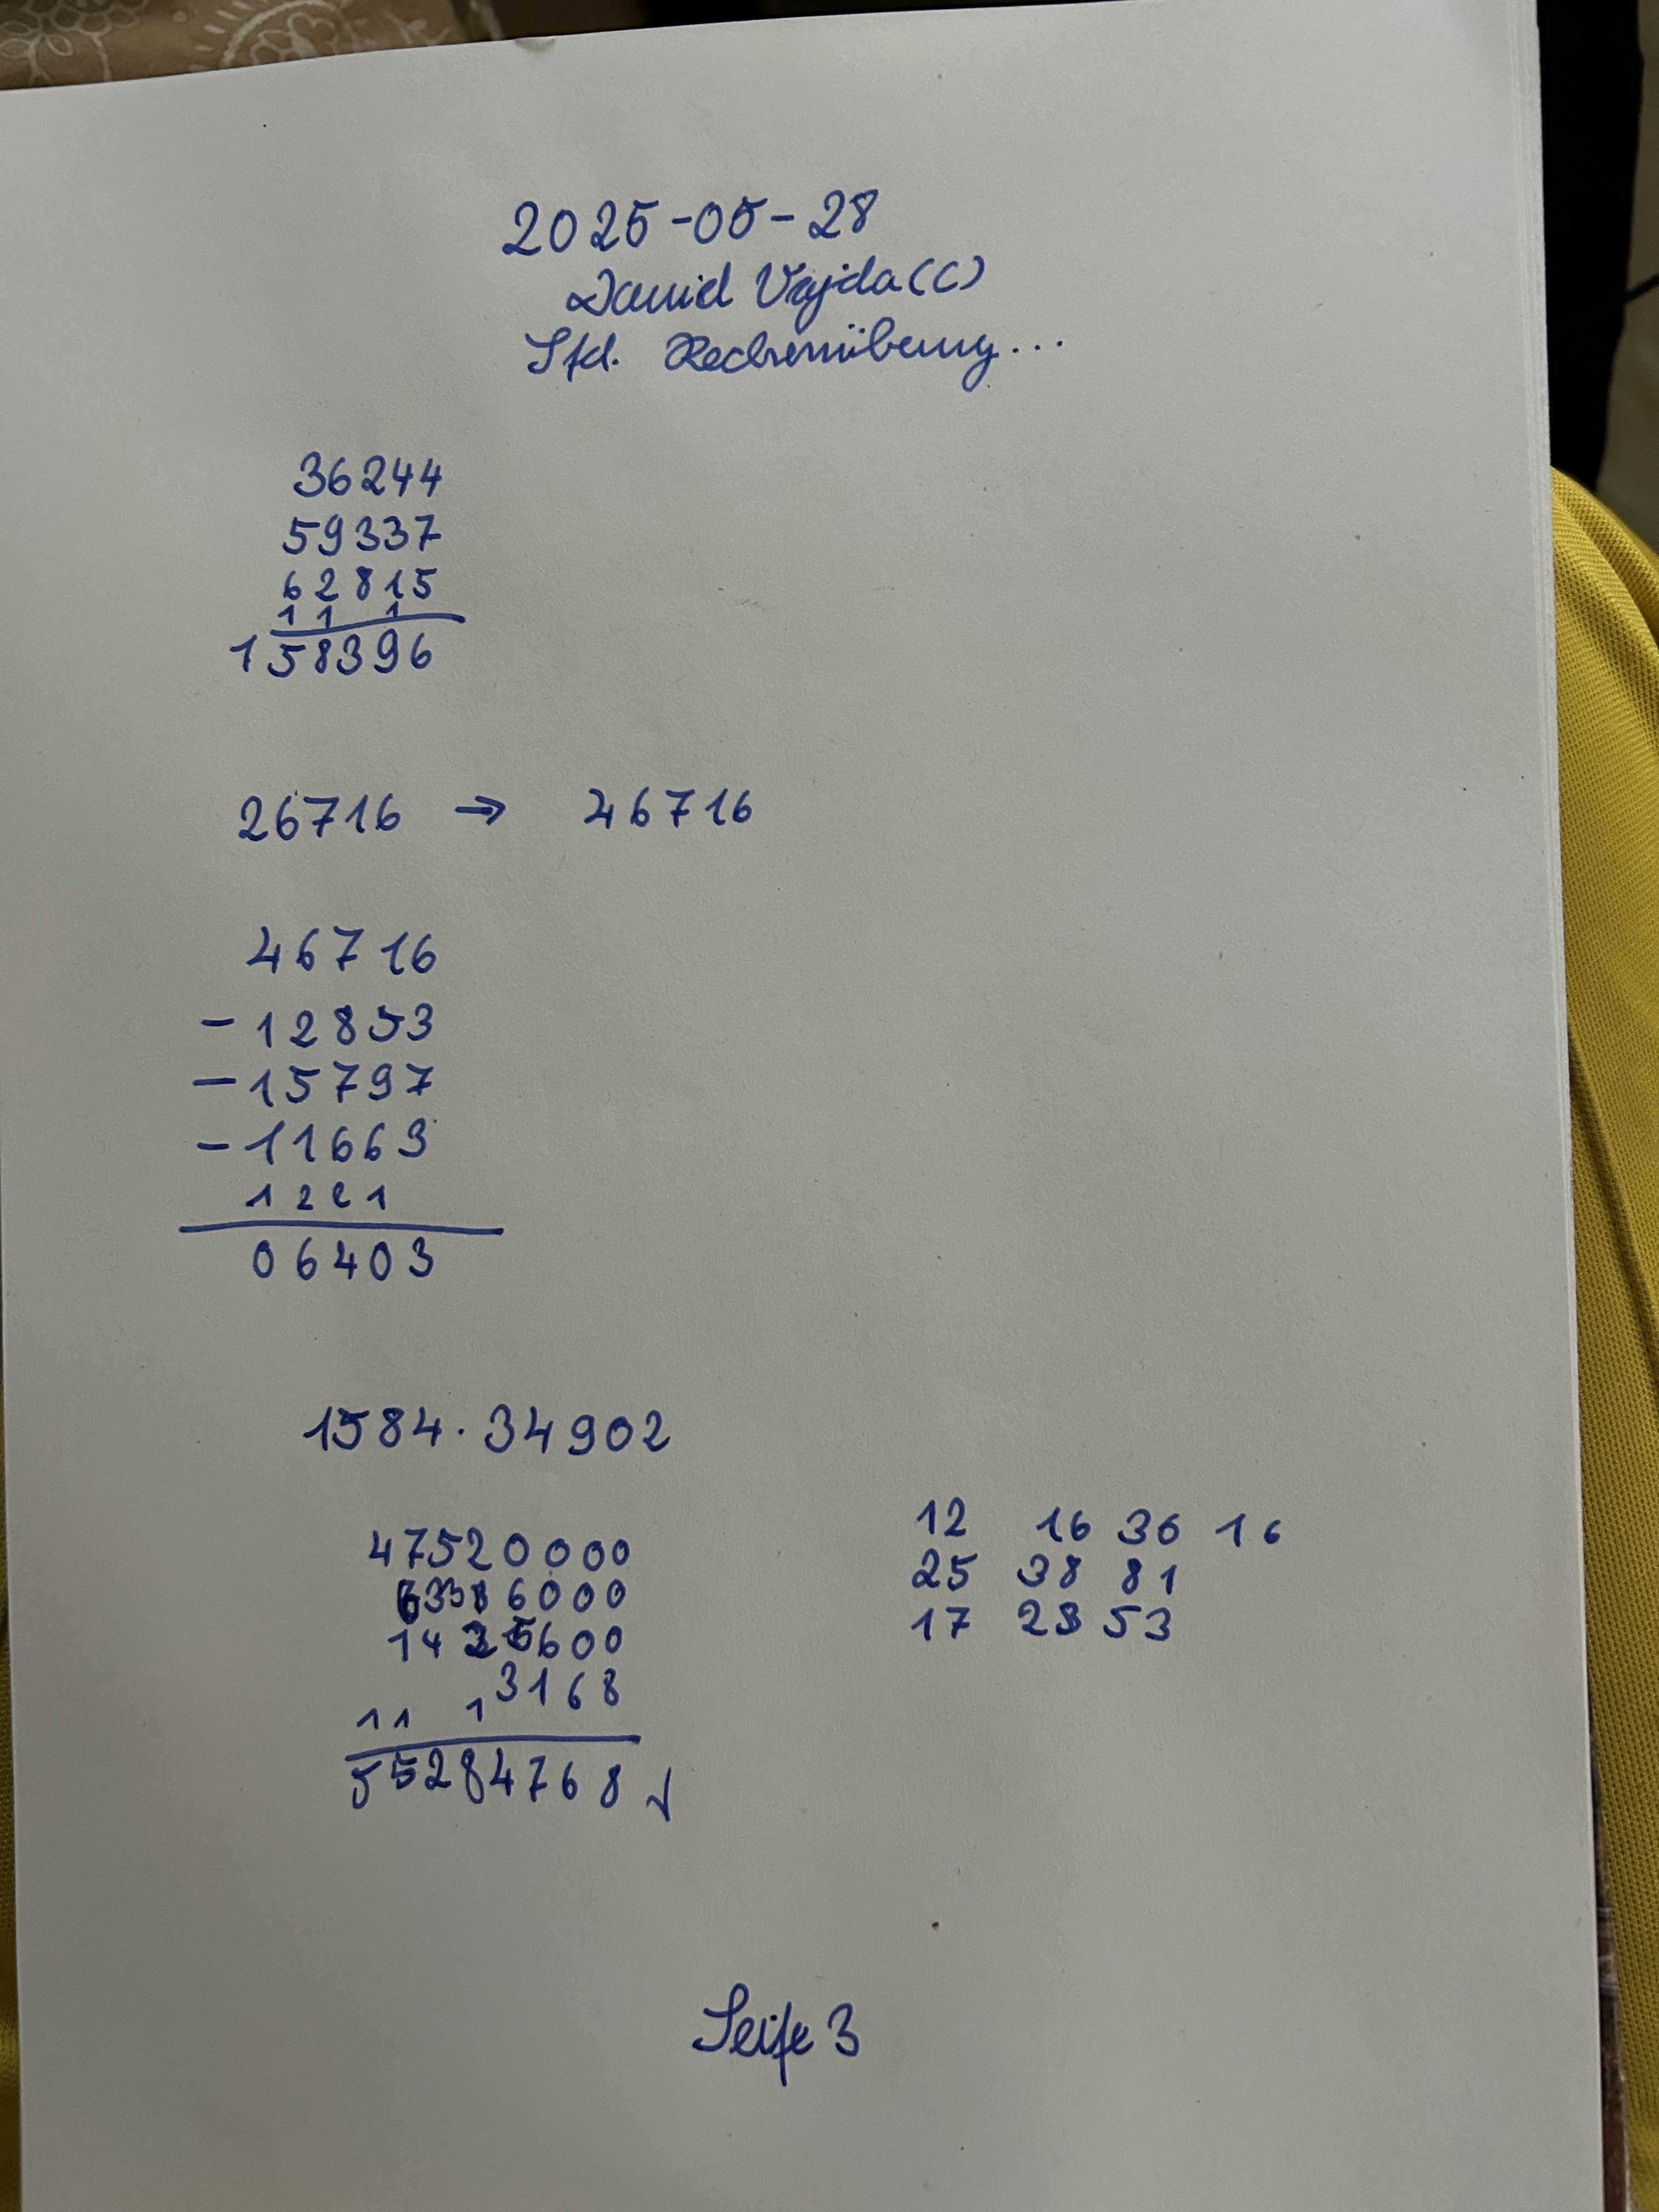 2025-05-28
David Vajda (C)
Std. Rechenübung...
36244
59337
62815
11 1
158396
26716 → 46716
46716
- 12853
- 15797
- 11663
1 2 2 1
06403
1584 · 34902
47520000
6336000
1425600
3168
11 1
55284768 √
12 16 36 16
25 38 81
17 28 53
Seite 3